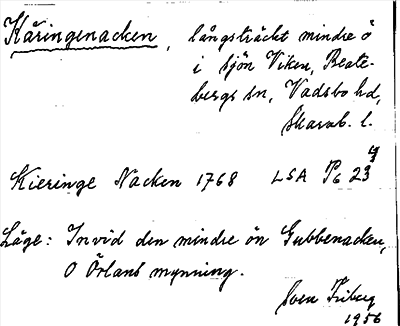 Käringenacken, långsträckt mindre ö
i sjön Viken, Beate-
bergs sn, Vadsbo hd,
Skarab. l.
4
Kieringe Nacken 1768 LSA P6 23
Läge: Invid den mindre ön Gubbenacken,
O Örlans mynning.
Sven Friberg
1956